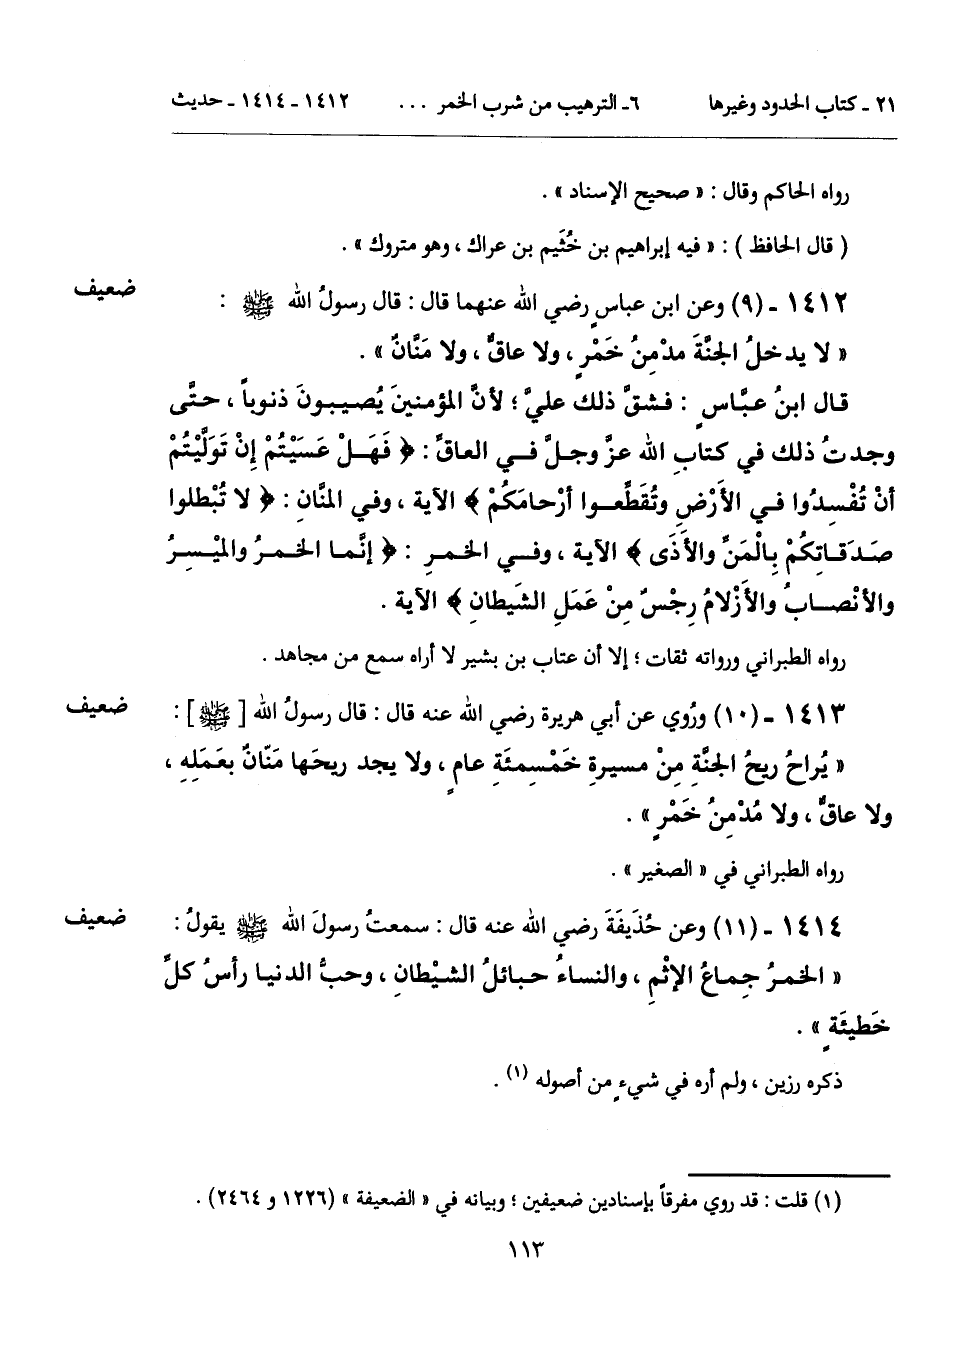 ٢١ ـ كتاب الحدود وغيرها ٦ـ الترهيب من شرب الخمر ... ١٤١٢ ـ ١٤١٤ ـ حديث
رواه الحاكم وقال : « صحيح الإسناد » .
( قال الحافظ ) : « فيه إبراهيم بن خُثَيم بن عراك ، وهو متروك » .
١٤١٢ ـ (٩) وعن ابن عباسٍ رضي الله عنهما قال : قال رسولُ الله ﷺ : ضعيف
« لا يدخلُ الجنَّةَ مدْمِنُ خَمْرٍ ، ولا عاقٌّ ، ولا مَنَّانٌ » .
قال ابنُ عبَّاسٍ : فشقَّ ذلك عليَّ ؛ لأنَّ المؤمنينَ يُصيبونَ ذنوباً ، حتَّى
وجدتُ ذلك في كتابِ الله عزَّ وجلَّ في العاقِّ : ﴿ فَهَلْ عَسَيْتُمْ إِنْ تَوَلَّيْتُمْ
أنْ تُفْسِدُوا في الأَرْضِ وتُقَطِّعوا أرْحامَكُمْ ﴾ الآية ، وفي المنَّانِ : ﴿ لا تُبْطلوا
صَدَقاتِكُمْ بِالْمَنِّ والأذَى ﴾ الآية ، وفي الخمرِ : ﴿ إنَّما الخمرُ والميْسِرُ
والأنْصابُ والأزْلامُ رِجْسٌ مِنْ عَمَلِ الشَيطانِ ﴾ الآية .
رواه الطبراني ورواته ثقات ؛ إلا أن عتاب بن بشير لا أراه سمع من مجاهد .
١٤١٣ ـ (١٠) ورُوي عن أبي هريرة رضي الله عنه قال : قال رسولُ الله [ ﷺ ] : ضعيف
« يُراحُ ريحُ الجنَّةِ مِنْ مسيرةِ خَمْسِمئَةِ عامٍ ، ولا يجد ريحَها مَنّانٌ بعَمَلِهِ ،
ولا عاقٌّ ، ولا مُدْمِنُ خَمْرٍ » .
رواه الطبراني في « الصغير » .
١٤١٤ ـ (١١) وعن حُذَيفَةَ رضي الله عنه قال : سمعتُ رسولَ الله ﷺ يقولُ : ضعيف
« الخمرُ جِماعُ الإثْمِ ، والنساءُ حبائلُ الشيْطانِ ، وحبُّ الدنيا رأسُ كلِّ
خَطيئَةٍ » .
ذكره رزين ، ولم أره في شيءٍ من أصوله (١) .
(١) قلت : قد روي مفرقاً بإسنادين ضعيفين ؛ وبيانه في « الضعيفة » (١٢٢٦ و ٢٤٦٤) .
١١٣